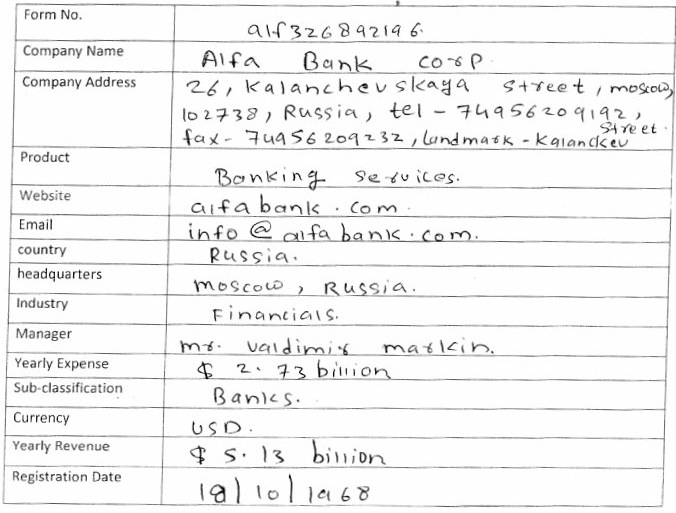 Form No. alf326892196.
Company Name Alfa Bank corp
Company Address 26, Kalanchevskaya street, moscow,
102738, Russia, tel - 74956209192,
fax - 74956209232, landmark - Kalanckev street.
Product Banking services.
Website alfabank.com.
Email info@alfabank.com.
country Russia.
headquarters moscow, Russia.
Industry Financials.
Manager mr. valdimir markin.
Yearly Expense $ 2.73 billion
Sub-classification Banks.
Currency USD.
Yearly Revenue $ 5.13 billion
Registration Date 19/10/1968